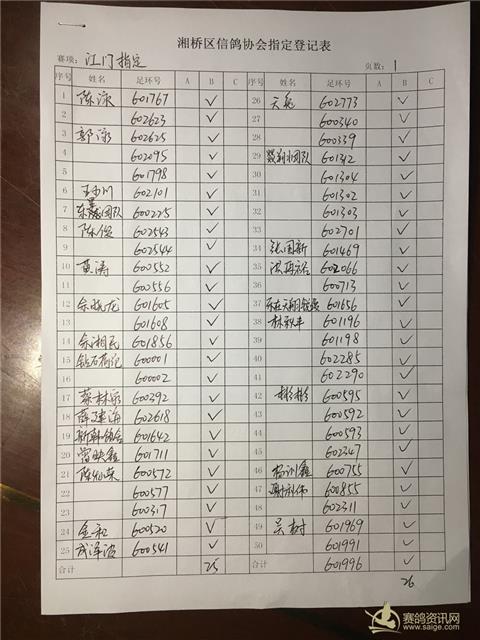 湘桥区信鸽协会指定登记表
赛项: 江门指定 页数: 1
序号 姓名 足环号 A B C 序号 姓名 足环号 A B C
1 陈泳 601767 ✓ 26 天龙 602773 ✓
2 602623 ✓ 27 600340 ✓
3 郭泳 602625 ✓ 28 600339 ✓
4 602095 ✓ 29 团队 601342 ✓
5 601798 ✓ 30 601304 ✓
6 602101 ✓ 31 601302 ✓
7 团队 600225 ✓ 32 601303 ✓
8 陈俊 602543 ✓ 33 602701 ✓
9 602544 ✓ 34 张国新 601469 ✓
10 黄涛 600552 ✓ 35 洪再裕 602066 ✓
11 600556 ✓ 36 600713 ✓
12 余晓龙 601605 ✓ 37 601656 ✓
13 601608 ✓ 38 林秋丰 601196 ✓
14 余湘民 601856 ✓ 39 601198 ✓
15 钻石荷花 600001 ✓ 40 602285 ✓
16 600002 ✓ 41 602290 ✓
17 蔡林 600392 ✓ 42 彬彬 600595 ✓
18 薛建海 602618 ✓ 43 600592 ✓
19 601642 ✓ 44 600593 ✓
20 曾映鑫 601711 ✓ 45 602347 ✓
21 陈灿荣 600572 ✓ 46 600755 ✓
22 600577 ✓ 47 600855 ✓
23 600317 ✓ 48 602311 ✓
24 金和 600520 ✓ 49 吴树 601969 ✓
25 成泽浩 600541 ✓ 50 601991 ✓
合计 25 合计 601996 ✓
26
赛鸽资讯网
www.saige.com